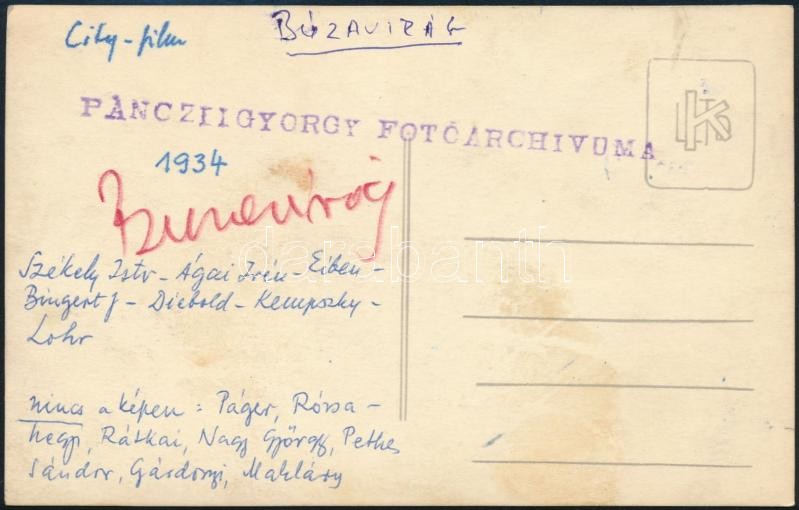 City-film
BÚZAVIRÁG
PÁNCZIIGYORGY FOTÓARCHIVUMA
1934
Buzavirág
Székely Istv - Ágai Irén - Eiben -
Bingert J - Diebold - Kempszky -
Lohr
nincs a képen = Páger, Rózsa-
hegyi, Rátkai, Nagy György, Pethes
Sándor, Gárdonyi, Makláry
darabanth